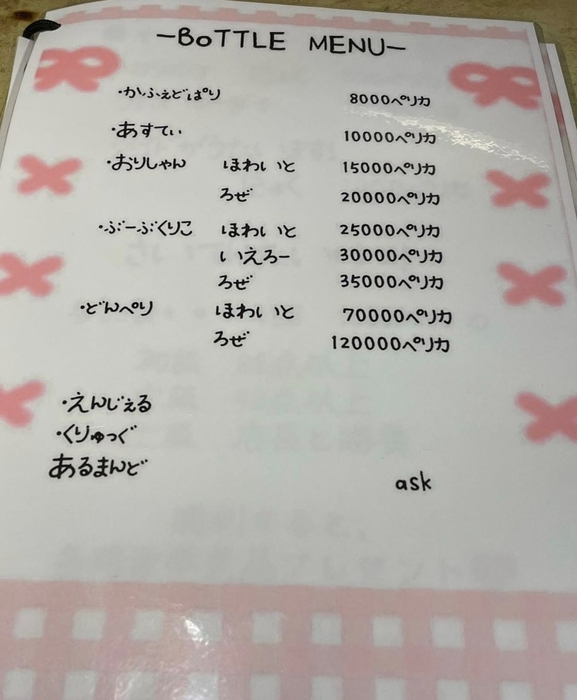 -BoTTLE MENU-
・かふぇどぱり 8000ペリカ
・あすてぃ 10000ペリカ
・おりしゃん ほわいと 15000ペリカ
ろぜ 20000ペリカ
・ぶーぶくりこ ほわいと 25000ペリカ
いえろー 30000ペリカ
ろぜ 35000ペリカ
・どんぺり ほわいと 70000ペリカ
ろぜ 120000ペリカ
・えんじぇる
・くりゅっぐ
あるまんど ask